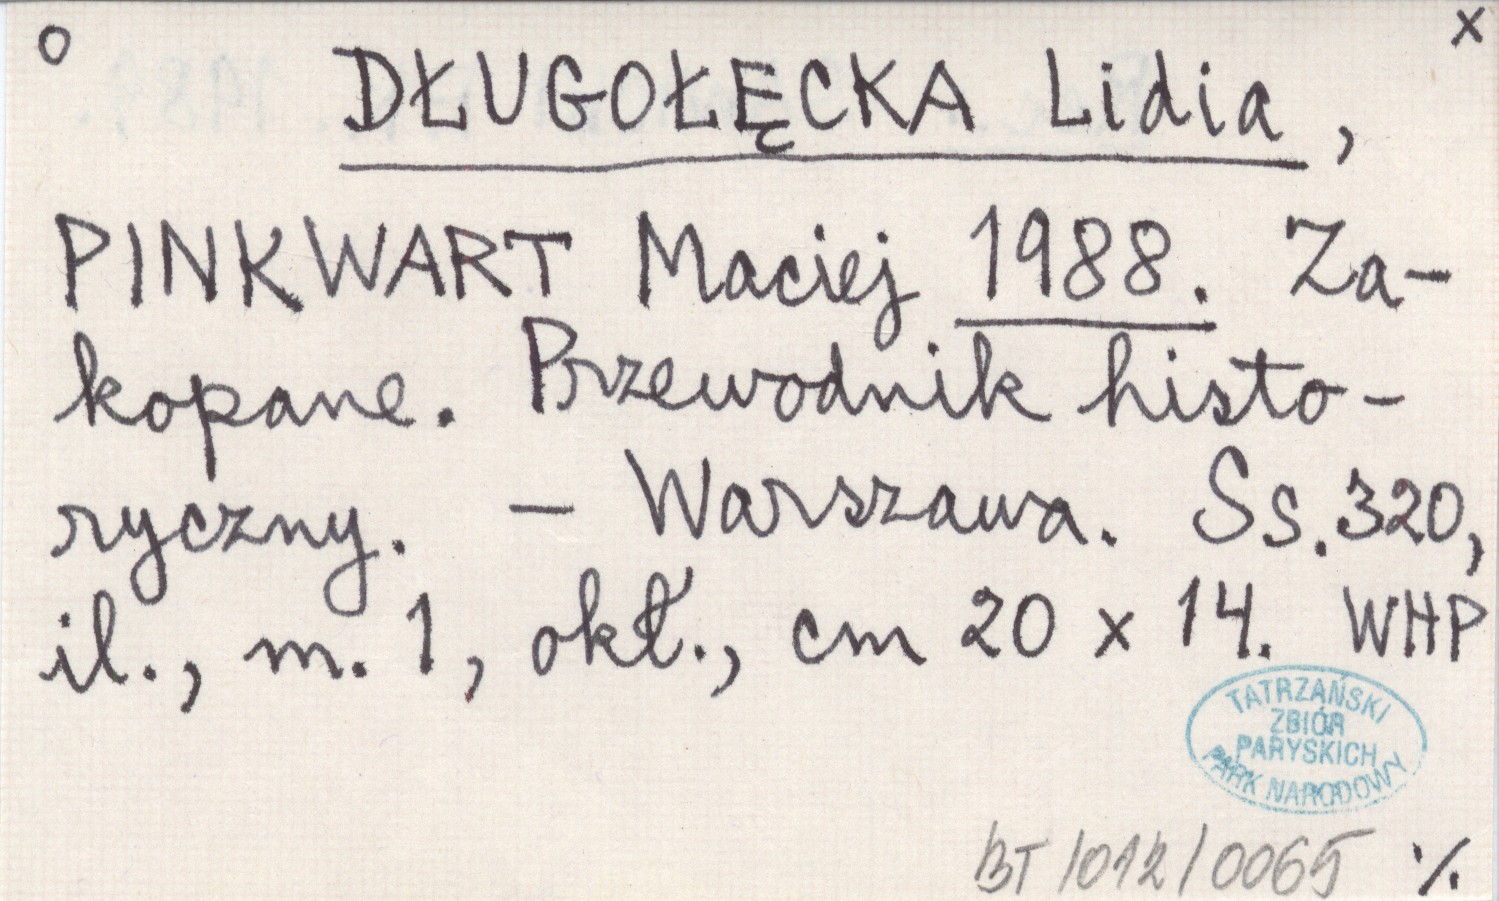 O x
DŁUGOŁĘCKA Lidia,
PINKWART Maciej 1988. Za-
kopane. Przewodnik histo-
ryczny. – Warszawa. Ss. 320,
il., m. 1, okł., cm 20 x 14. WHP
TATRZAŃSKI
ZBIÓR
PARYSKICH
PARK NARODOWY
BT/012/0065 ·/.